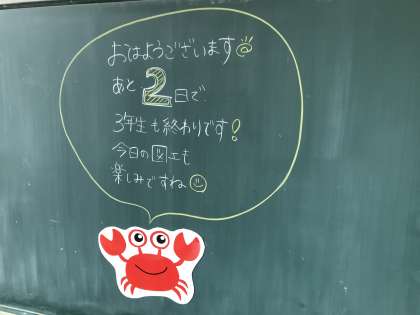 おはようございます
あと2日で、
3年生も終わりです!
今日の図工も
楽しみですね